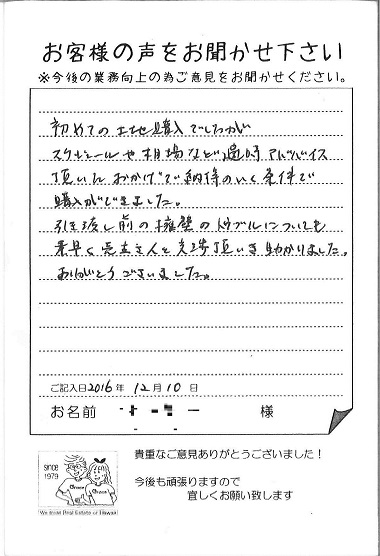 お客様の声をお聞かせ下さい
※今後の業務向上の為ご意見をお聞かせください。
初めての土地購入でしたが
スケジュールや相場など適時アドバイス
頂いたおかげで納得のいく条件で
購入ができました。
引き渡し前の擁壁のトラブルについても
素早く売主さんと交渉頂いき助かりました。
ありがとうございました。
ご記入日2016年 12月10日
お名前 様
貴重なご意見ありがとうございました！
今後も頑張りますので
宜しくお願い致します
since
1979
Grace
Grace
We Build Real Estate of Hawaii